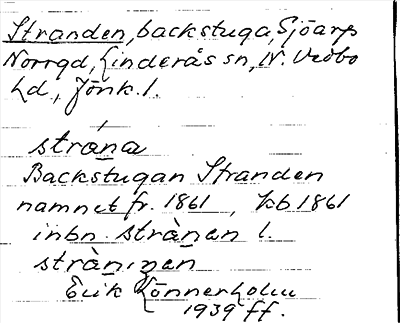 Stranden, backstuga, Sjöarp
Norrgd, Linderås sn, N. Vedbo
hd, Jönk. l.
strána
Backstugan Stranden
namnet fr. 1861, kb 1861
inbn. strànen l.
strànịnen
Erik Lönnerholm
1939 ff.